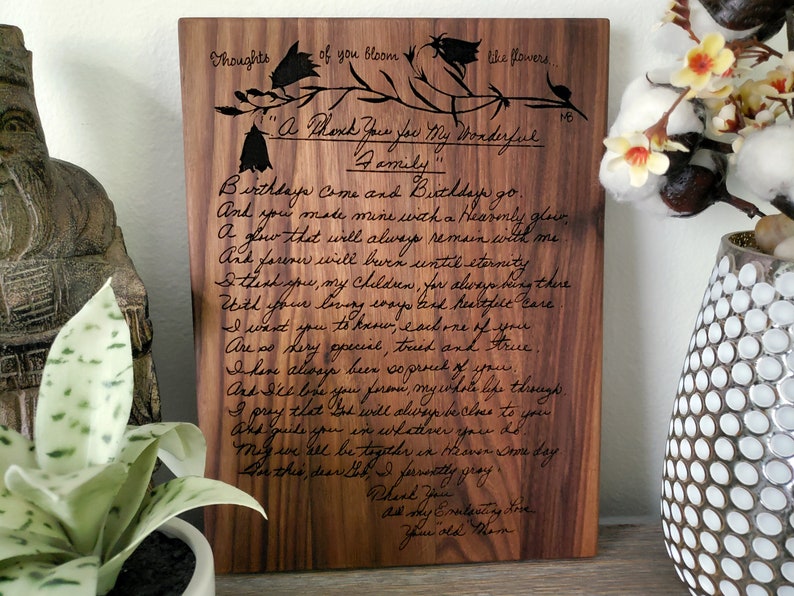 Thoughts of you bloom like flowers...
MB
"A Thank You for My Wonderful
Family"
Birthdays come and Birthdays go.
And you made mine with a Heavenly glow,
A glow that will always remain with me
And forever will burn until eternity
I thank you, my children, for always being there
With your loving ways and heartfelt care.
I want you to know, each one of you
Are so very special, tried and true.
I have always been so proud of you.
And I'll love you forever, my whole life through.
I pray that God will always be close to you
And guide you in whatever you do.
May we all be together in Heaven some day
For this, dear God, I fervently pray!
Thank You
All my Everlasting Love
Your "old" Mom